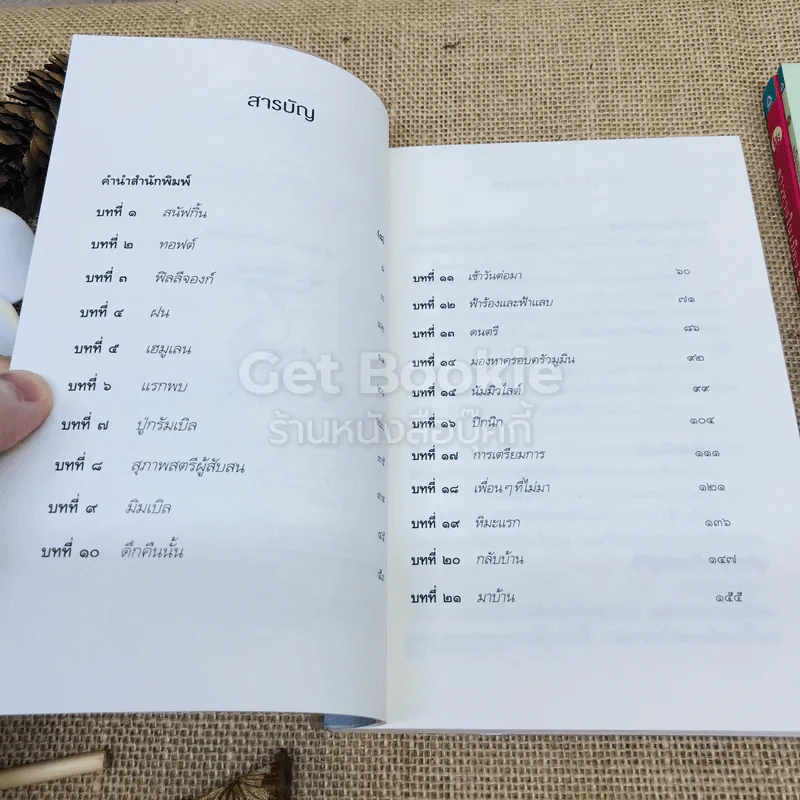 สารบัญ
คำนำสำนักพิมพ์
บทที่ ๑ สนัฟกิ้น
บทที่ ๒ ทอฟต์
บทที่ ๓ ฟิลลีจองก์
บทที่ ๔ ฝน
บทที่ ๕ เฮมูเลน
บทที่ ๖ แรกพบ
บทที่ ๗ ปู่กรัมเบิล
บทที่ ๘ สุภาพสตรีผู้สับสน
บทที่ ๙ มิมเบิล
บทที่ ๑๐ ดึกคืนนั้น
บทที่ ๑๑ เช้าวันต่อมา ๖๐
บทที่ ๑๒ ฟ้าร้องและฟ้าแลบ ๗๑
บทที่ ๑๓ ดนตรี ๘๖
บทที่ ๑๔ มองหาครอบครัวมูมิน ๙๒
บทที่ ๑๕ นัมมิวไลต์ ๙๙
บทที่ ๑๖ ปิกนิก ๑๐๔
บทที่ ๑๗ การเตรียมการ ๑๑๑
บทที่ ๑๘ เพื่อนๆ ที่ไม่มา ๑๒๑
บทที่ ๑๙ หิมะแรก ๑๓๖
บทที่ ๒๐ กลับบ้าน ๑๔๗
บทที่ ๒๑ มาบ้าน ๑๕๕
Get Bookie
ร้านหนังสือบุ๊คกี้